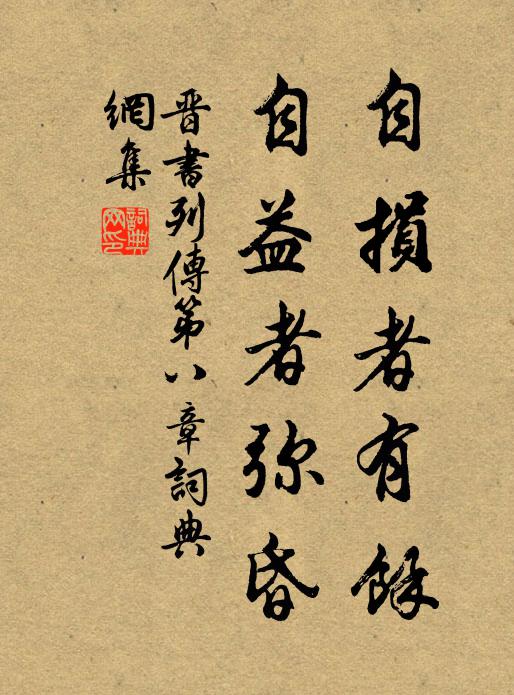 自損者有餘
自益者弥昏
晋書列傳第八章詞典
網集
詞典
网印